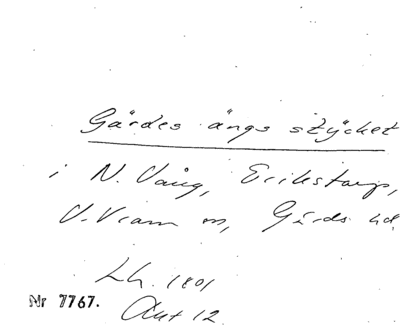 Gärdes ängs stycket
i N. Vång, Erikstorp,
V. Vram sn, Gärds hd.
Lh. 1801
Akt 12
Nr 7767.